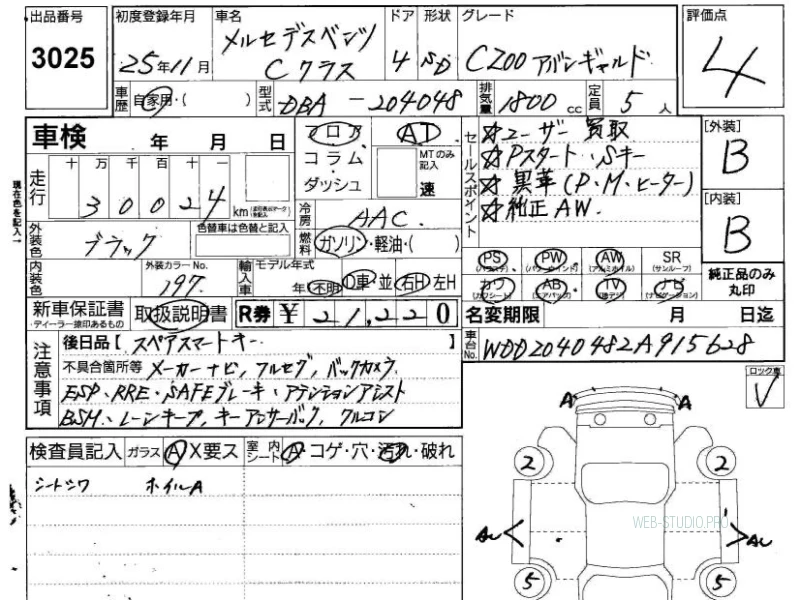 出品番号 初度登録年月 車名 ドア 形状 グレード 評価点
3025 25年11月 メルセデスベンツ Cクラス 4 SD C200 アバンギャルド 4
車歴 自家用・( ) 型式 DBA-204048 排気量 1800cc 定員 5人
車検 年 月 日 フロア AT セールスポイント ☆ユーザー買取 [外装]
コラム・ MTのみ記入 ☆Pスタート.Sキー B
走行 十 万 千 百 十 一 ダッシュ 速 ☆黒革(P・M・ヒーター)
現在色を記入 30024 km 冷房 AAC. ☆純正AW. [内装]
外装色 ブラック 色替車は色替と記入 燃料 ガソリン・軽油・( ) B
PS PW AW SR
(パワステ) (パワーウインド) (アルミホイル) (サンルーフ)
内装色 外装カラーNo. 197. 輸入車 モデル年式 年 不明 D車・並 右H 左H カワ AB TV ナビ 純正品のみ丸印
(カワシート) (エアバッグ) (地デジ) (ナビゲーション)
新車保証書 取扱説明書 R券 ¥ 21,220 名変期限 月 日迄
ディーラー捺印あるもの
注意事項 後日品【 スペアスマートキー 】 車台No. WDD2040482A915628
不具合箇所等 メーカーナビ, フルセグ, バックカメラ. ロック車
ESP、RRE・SAFEブレーキ、アテンションアシスト V
BSM、レーンキープ, キーアンサーバック, クルコン
検査員記入 ガラス A X要ス 室内シート A・コゲ・穴・汚れ・破れ
シートシワ ホイルA
A A
2 2
WEB-STUDIO.PRO
AU AU
5 5